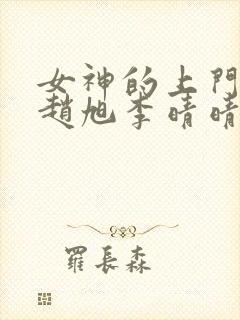 女神的上門
趙旭李晴晴
羅長森